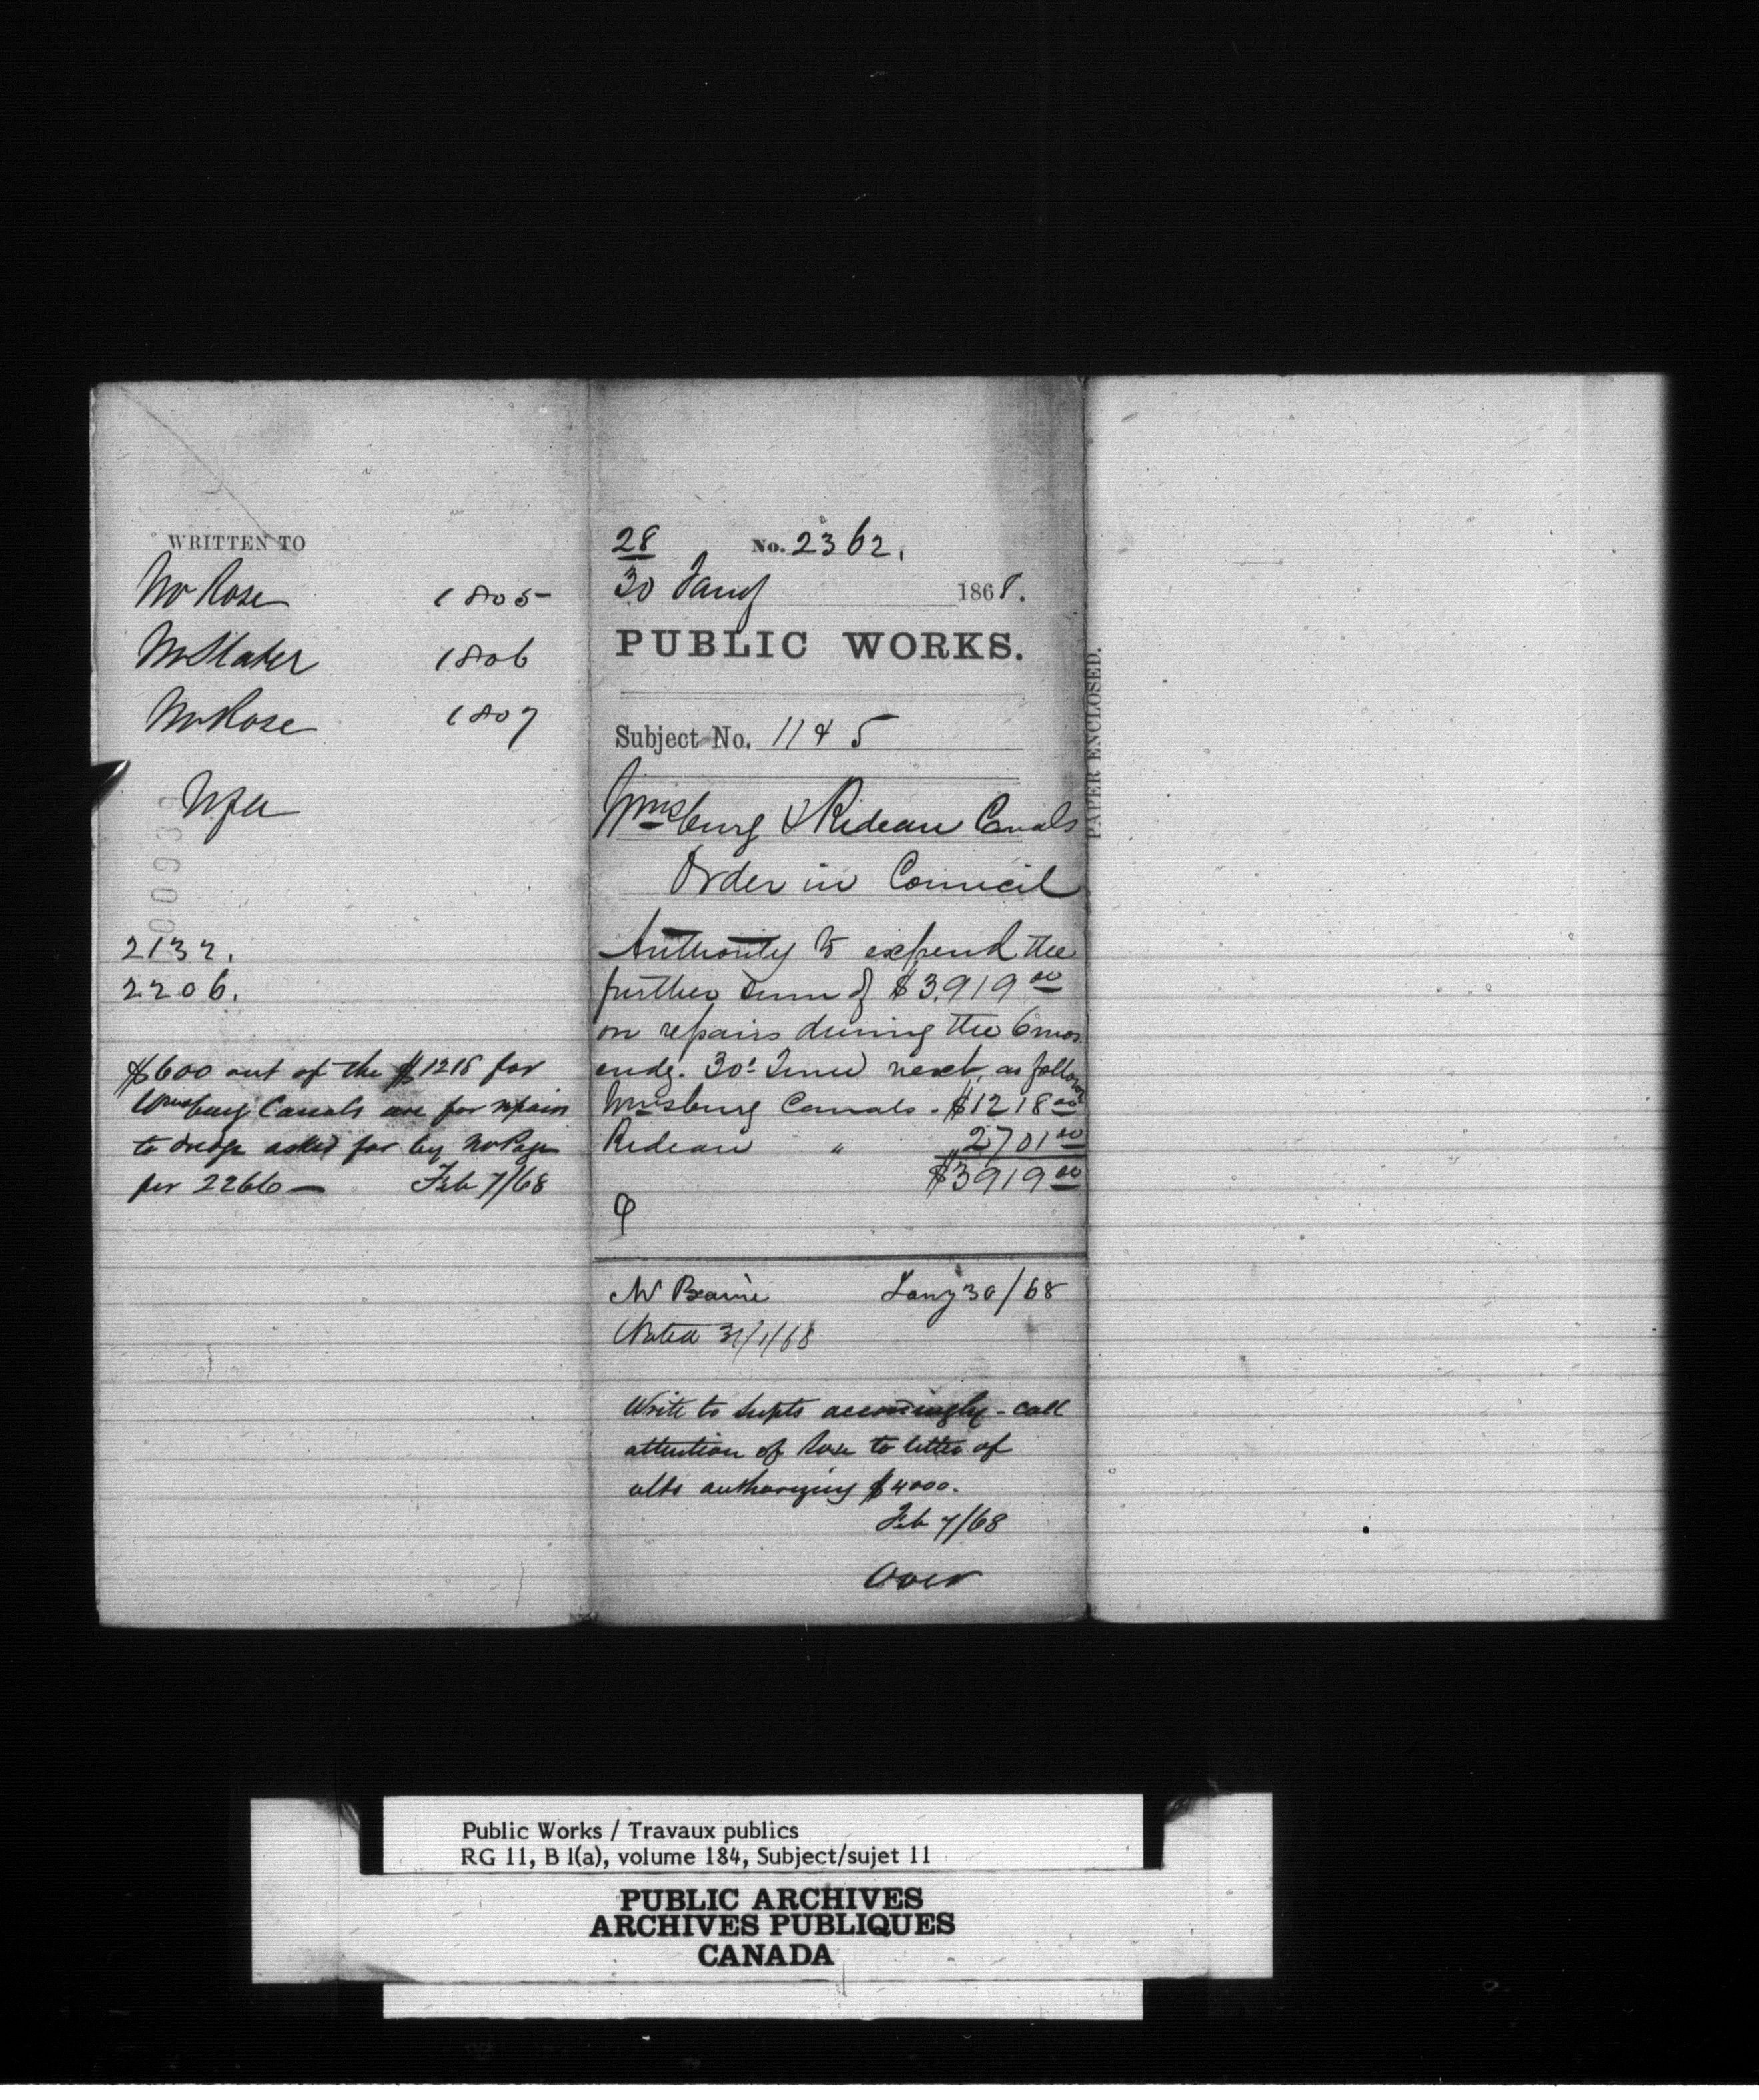 WRITTEN TO
Mr Rose 1805
Mr Slater 1806
Mr Rose 1807
000939
2132.
2206.
$600 out of the $1218 for
Wmsburg Canals are for repairs
to dredge asked for by Mr Page
per 2266 — Feb 7/68
28 No. 2362.
30 Jany 1868.
PUBLIC WORKS.
Subject No. 11 & 5
Wmsburg & Rideau Canals
Order in Council
Authority to expend the
further sum of $3,919 00
on repairs during the 6 mos.
endg. 30th June next, as follows
Wmsburg Canals. $1218 00
Rideau " " 2701 00
$3919 00
Mr Braun Jany 30/68
Noted 31/1/68
Write to Supts accordingly - call
attention of Rose to letter of
ulto authorizing $4000.
Feb 7/68
Over
PAPER ENCLOSED.
Public Works / Travaux publics
RG 11, B 1(a), volume 184, Subject/sujet 11
PUBLIC ARCHIVES
ARCHIVES PUBLIQUES
CANADA